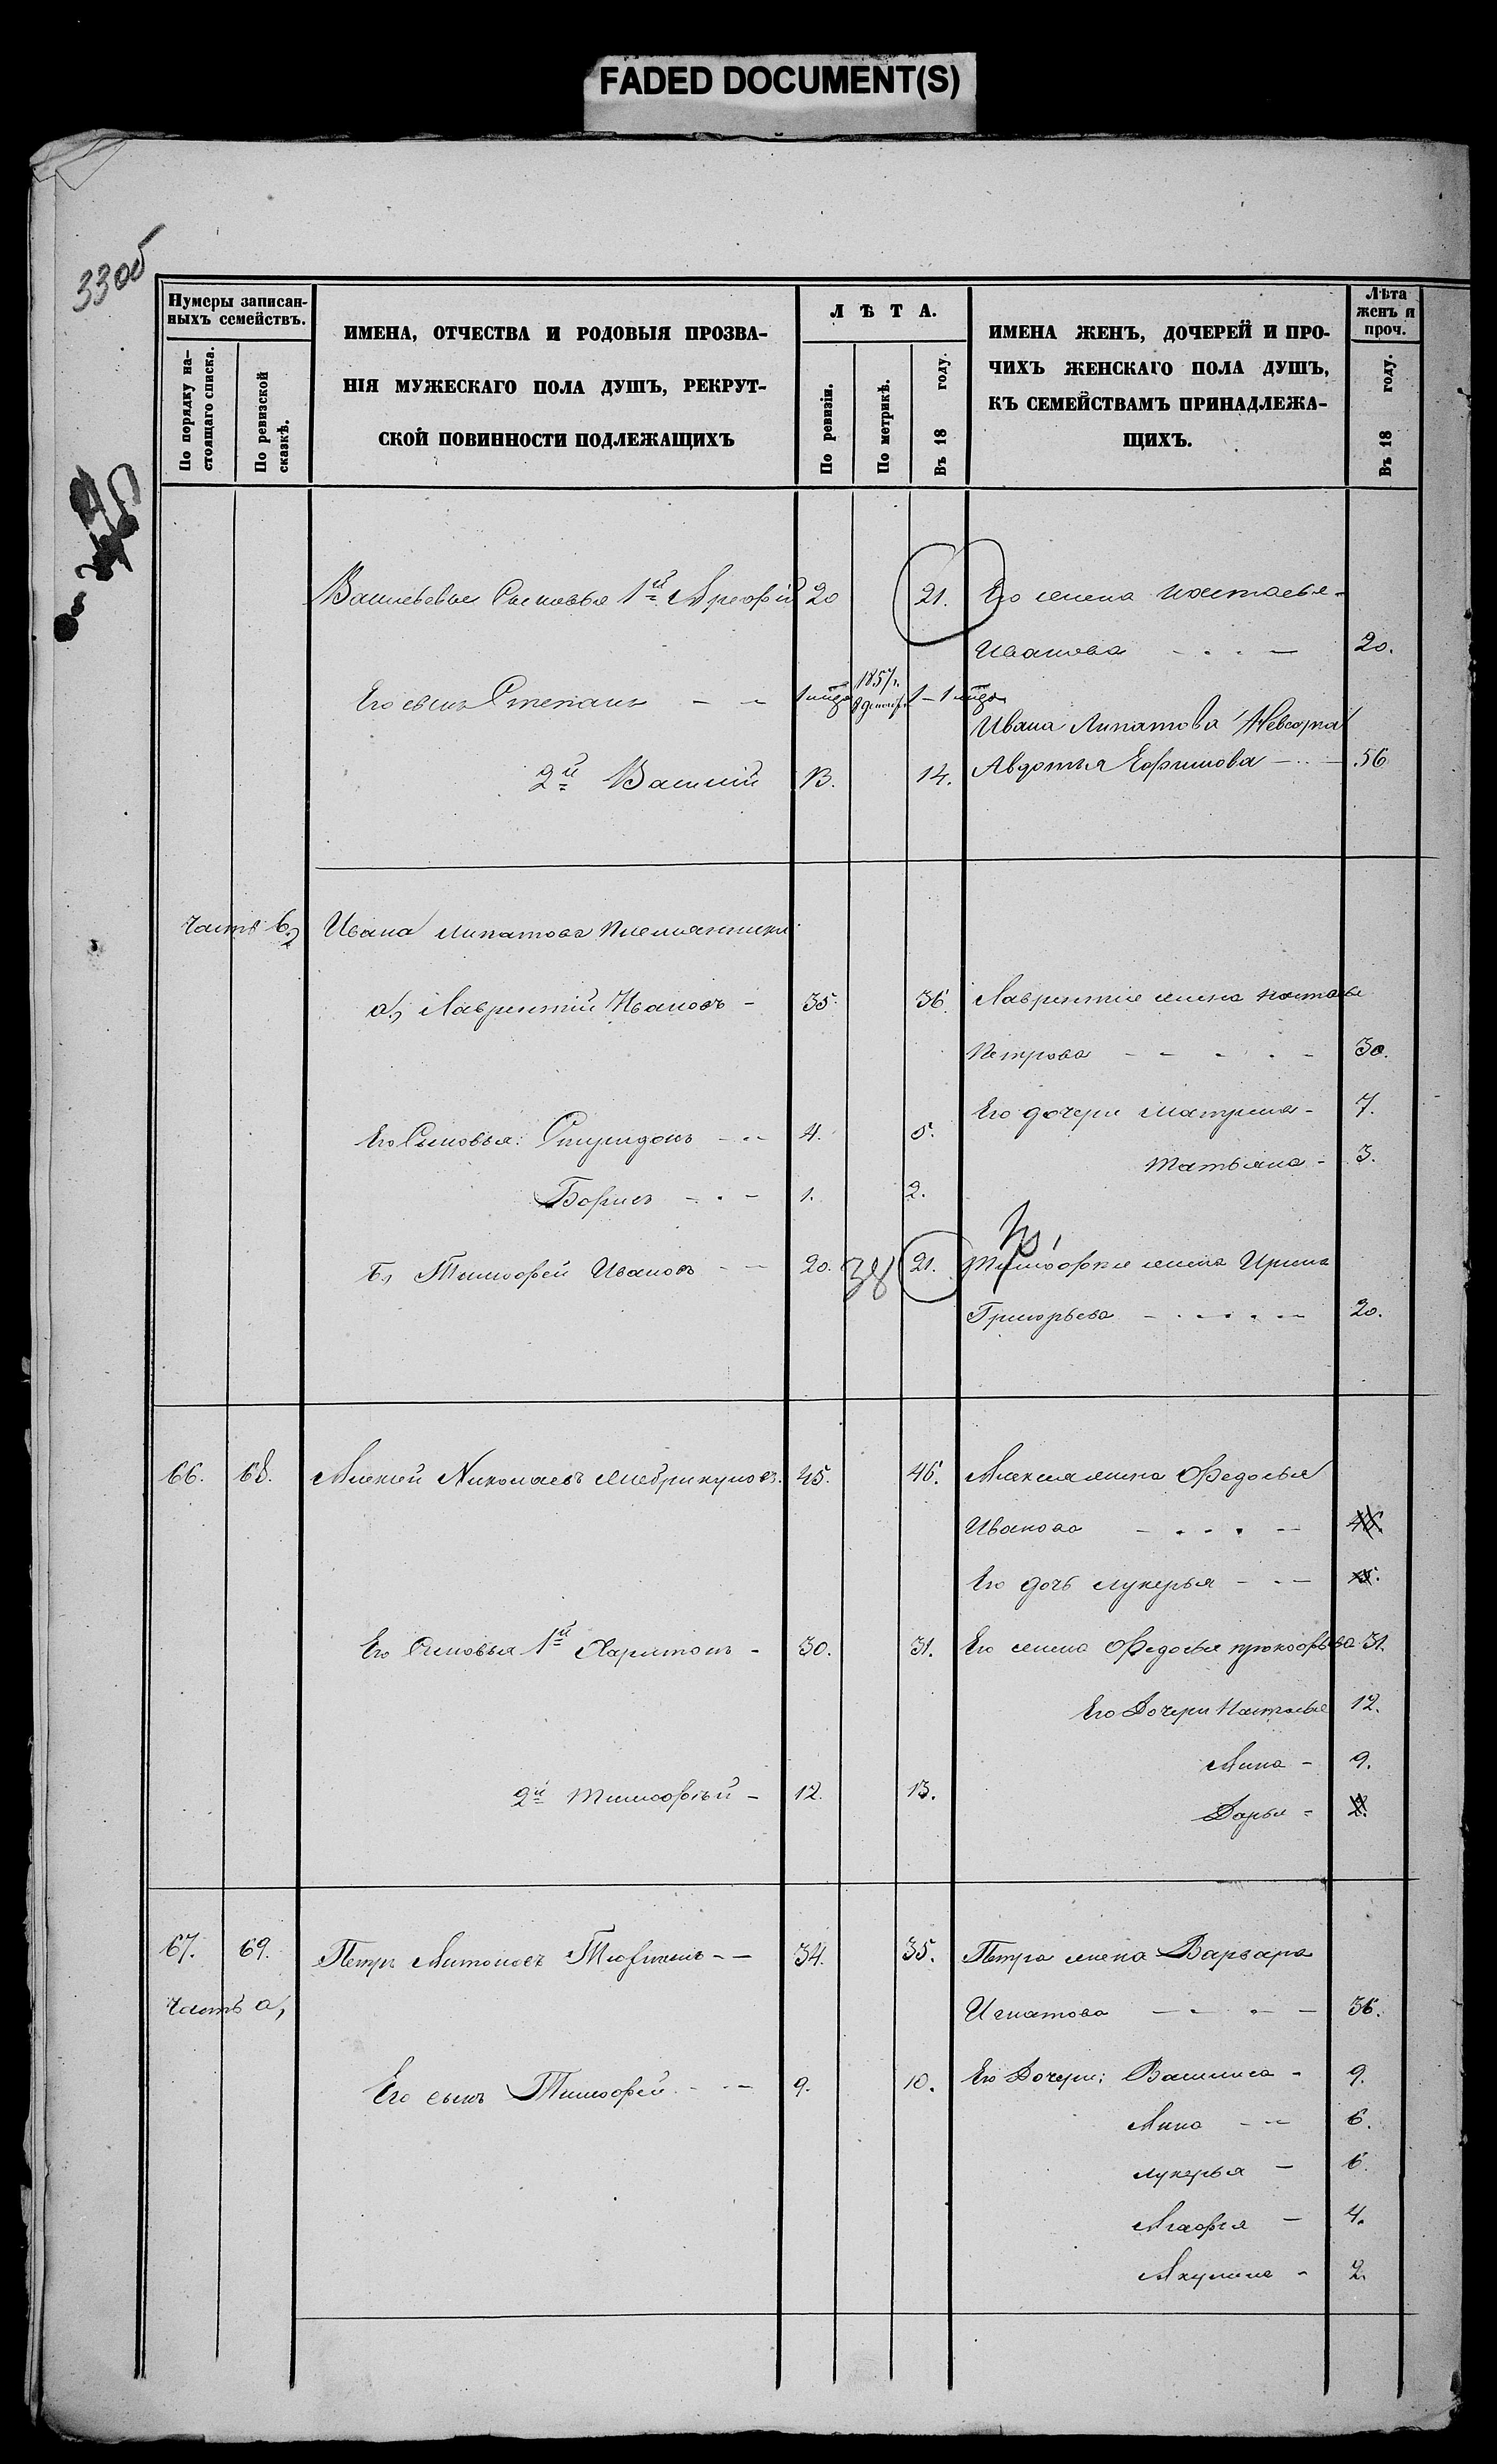 FADED DOCUMENT(S)
33об
Нумеры записан-
ныхъ семействъ.
По порядку на-
стоящаго списка.
По ревизской
сказкѣ.
ИМЕНА, ОТЧЕСТВА И РОДОВЫЯ ПРОЗВА-
НІЯ МУЖЕСКАГО ПОЛА ДУШЪ, РЕКРУТ-
СКОЙ ПОВИННОСТИ ПОДЛЕЖАЩИХЪ
Л Ѣ Т А.
По ревизіи.
По метрикѣ.
Въ 18 году.
ИМЕНА ЖЕНЪ, ДОЧЕРЕЙ И ПРО-
ЧИХЪ ЖЕНСКАГО ПОЛА ДУШЪ,
КЪ СЕМЕЙСТВАМЪ ПРИНАДЛЕЖА-
ЩИХЪ.
Лѣта
женъ и
проч.
Въ 18 году.
Васильевы Сыновья 1й 20 21. Его жена Настасья
Иванова 20.
Его сынъ Степанъ 1857г.
Ивана Липатова Невестка
2й Василій 13. 14. Авдотья Ефимова 56
часть б, Ивана Липатова племянники
а, Лаврентій Ивановъ 35. 36. Лаврентія жена Настасья
Петрова 30.
Его дочери Матрена 7.
Его Сыновья: Спиридонъ 4. 5.
Татьяна 3.
Борисъ 1. 2.
б, Тимофей Ивановъ 20. 38 21. Тимофея жена Ирина
Григорьева 20.
66. 68. Алексѣй Николаевъ 45. 46. Алексея жена Федосья
Иванова 46.
Его дочь Лукерья
Его Сыновья 1й Харитонъ 30. 31. Его жена Федосья Прокофьева 31.
Его Дочери Настасья 12.
Анна 9.
2й Тимофей 12. 13.
Дарья 2.
67. 69. Петръ Антоновъ 34. 35. Петра жена Варвара
часть а, Игнатова 36.
Его сынъ Тимофей 9. 10. Его Дочери: Василиса 9.
Анна 6.
Лукерья 6.
Агафья 4.
Акулина 2.